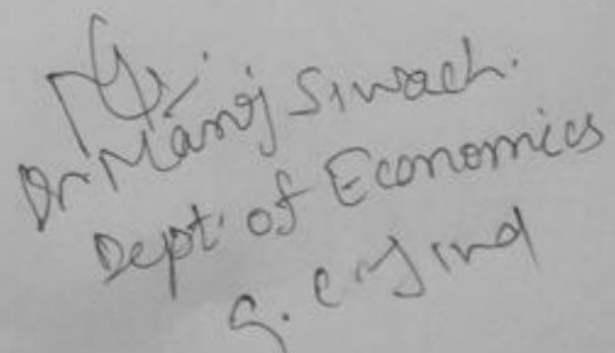 Dr Manoj Siwach.
Dept. of Economics
G. C. Jind